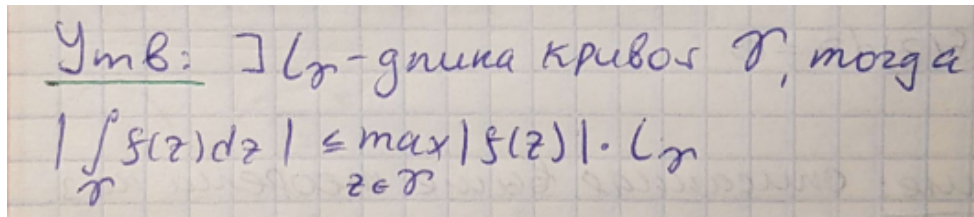 Утв: ] lγ - длина кривой γ, тогда
| ∫γ f(z)dz | ≤ max z∈γ |f(z)| · lγ